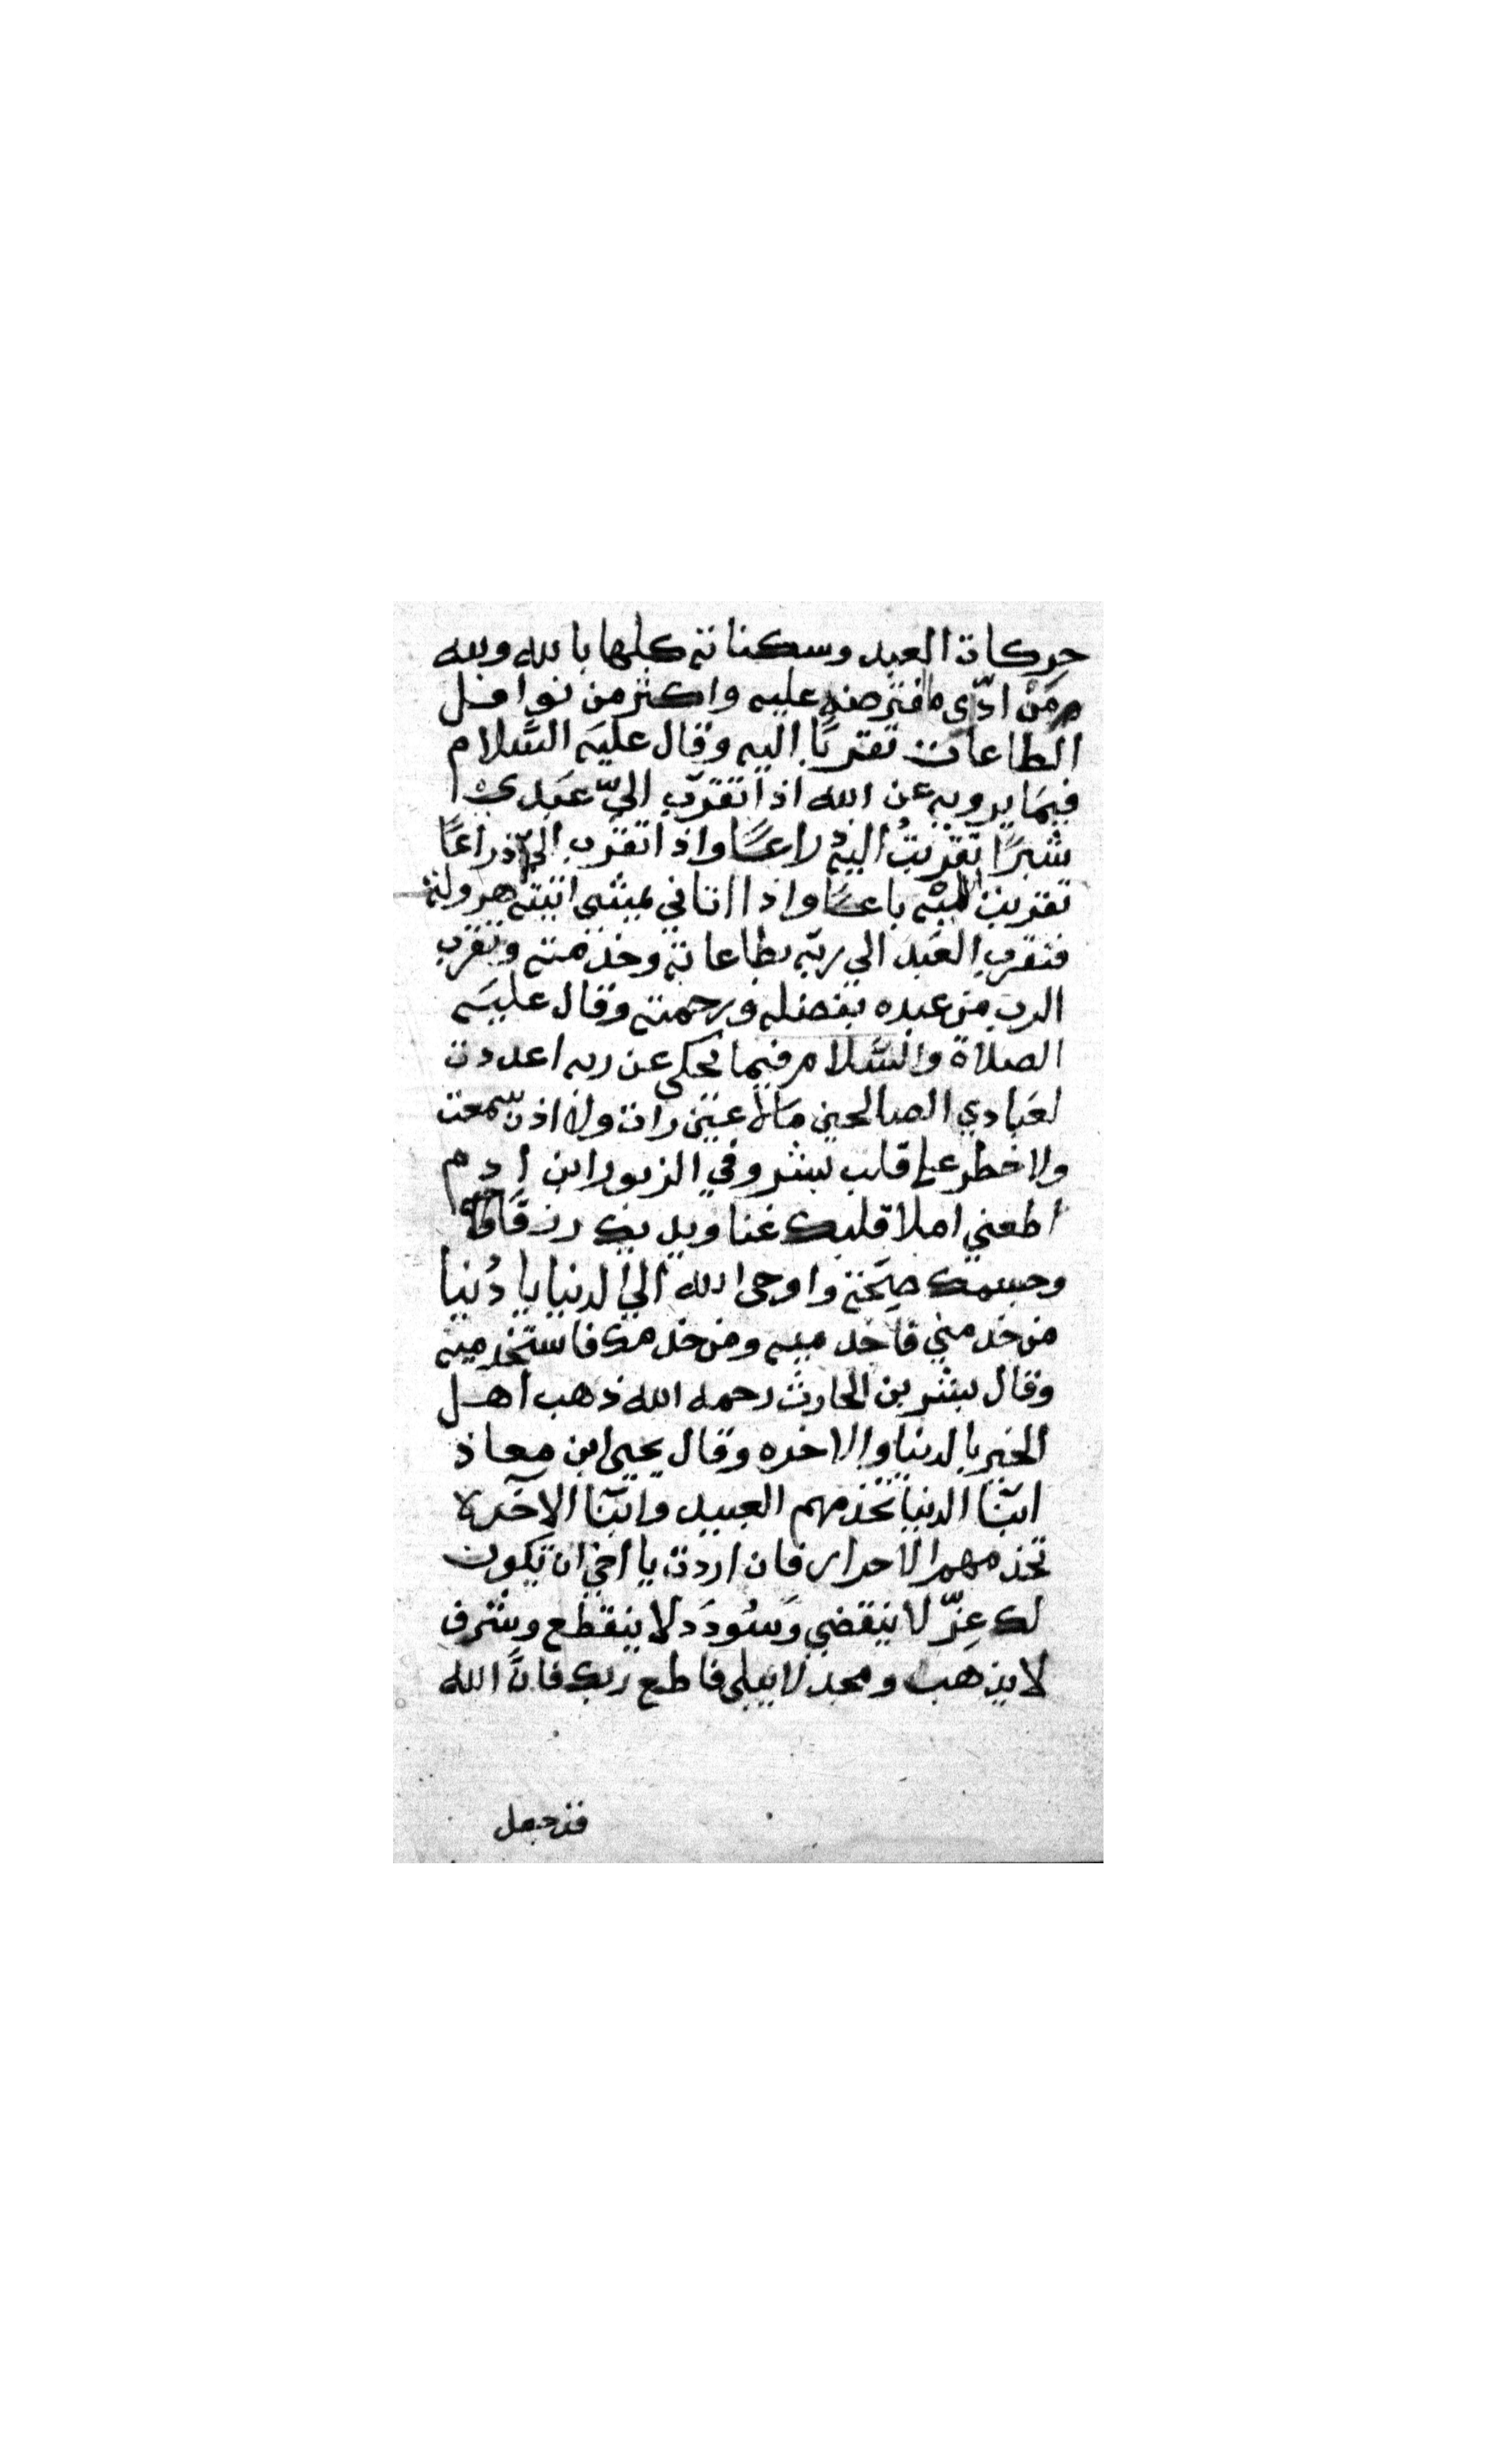 حركات العبد وسكناته كلها بالله ولله
من ادّى ما افترضه عليه واكثر من نوافل
الطاعات تقربًا اليه وقال عليه السَّلام
فيما يرويه عن الله اذا تقرّب اليّ عبدي
شبرًا تقربتُ اليه ذراعًا واذا تقرب اليّ ذراعًا
تقربت اليه باعًا واذا اتاني يمشي اتيته هرولة
فتقرب العبد الي ربّه بطاعاته وخدمته وتقرب
الرب من عبده بفضله ورحمته وقال عليه
الصلاة والسَّلام فيما يحكي عن ربه اعددت
لعبادي الصالحين ما لا عين رات ولا اذن سمعت
ولا خطر على قلب بشر وفي الزبور ابن ادم
اطعني املا قلبك غنا ويديك رزقًا
وجسمك صحّة واوحى الله الي الدنيا يا دُنيا
من خدمني فاخدميه ومن خدمك فاستخدميه
وقال بشر بن الحارث رحمه الله ذهب اهل
الخير بالدنيا والاخره وقال يحيى ابن معاذ
ابنَّا الدنيا تخدمهم العبيد وابنَّا الآخرة
تخدمهم الاحرار فان اردت يا اخي ان تكون
لك عِزّ لا ينقضي وَسُودَد لا ينقطع وشرف
لا يذهب ومجد لا يبلى فاطع ربك فانَّ الله
قد جعل